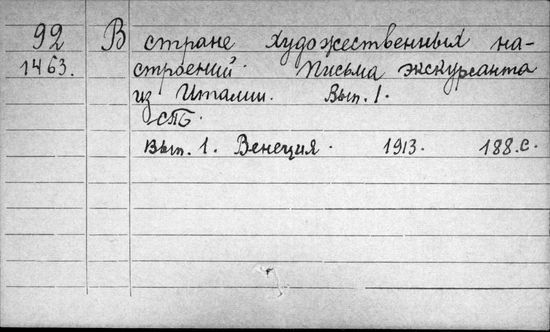 92 В стране художественных на-
1463. строений. Письма экскурсанта
из Италии. Вып. 1.
СПБ.
Вып. 1. Венеция. 1913. 188 с.